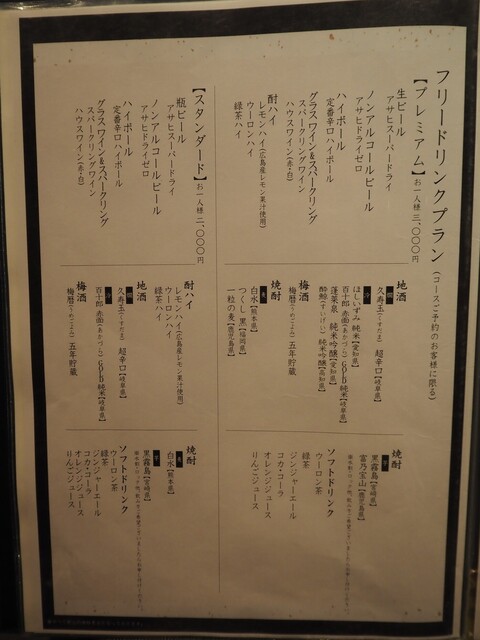 フリードリンクプラン(コースご予約のお客様に限る)
【プレミアム】お一人様 三、〇〇〇円
生ビール
アサヒスーパードライ
ノンアルコールビール
アサヒドライゼロ
ハイボール
定番辛口ハイボール
グラスワイン&スパークリング
スパークリングワイン
ハウスワイン(赤・白)
酎ハイ
レモンハイ(広島産レモン果汁使用)
ウーロンハイ
緑茶ハイ
地酒
久寿玉(くすだま) 超辛口【岐阜県】
ほしいずみ 純米【愛知県】
百十郎 赤面(あかづら) GOLD 純米【岐阜県】
蓬莱泉 純米吟醸【愛知県】
酔鯨(すいげい) 純米吟醸【高知県】
梅酒
梅暦(うめごよみ) 五年貯蔵
焼酎
麦
白水【熊本県】
つくし 黒【福岡県】
一粒の麦【鹿児島県】
焼酎
芋
黒霧島【宮崎県】
富乃宝山【鹿児島県】
ソフトドリンク
ウーロン茶
緑茶
ジンジャーエール
コカ・コーラ
オレンジジュース
りんごジュース
【スタンダード】お一人様 二、〇〇〇円
瓶ビール
アサヒスーパードライ
ノンアルコールビール
アサヒドライゼロ
ハイボール
定番辛口ハイボール
グラスワイン&スパークリング
スパークリングワイン
ハウスワイン(赤・白)
酎ハイ
レモンハイ(広島産レモン果汁使用)
ウーロンハイ
緑茶ハイ
地酒
久寿玉(くすだま) 超辛口【岐阜県】
百十郎 赤面(あかづら) GOLD 純米【岐阜県】
梅酒
梅暦(うめごよみ) 五年貯蔵
焼酎
麦
白水【熊本県】
芋
黒霧島【宮崎県】
ソフトドリンク
ウーロン茶
緑茶
ジンジャーエール
コカ・コーラ
オレンジジュース
りんごジュース